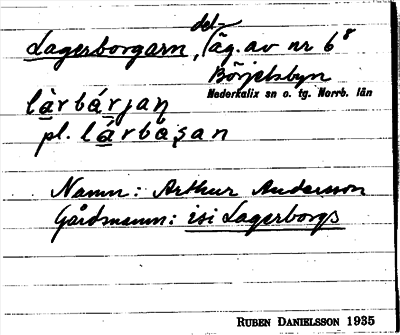 Lagerborgarn, del- äg. av nr 6⁸
Börjelsbyn
Nederkalix sn o. tg. Norrb. län
làrbárjaņ
pl. làrbáʒan
Namn: Arthur Andersson
Gårdsnamn: isi Lagerborgs
RUBEN DANIELSSON 1935